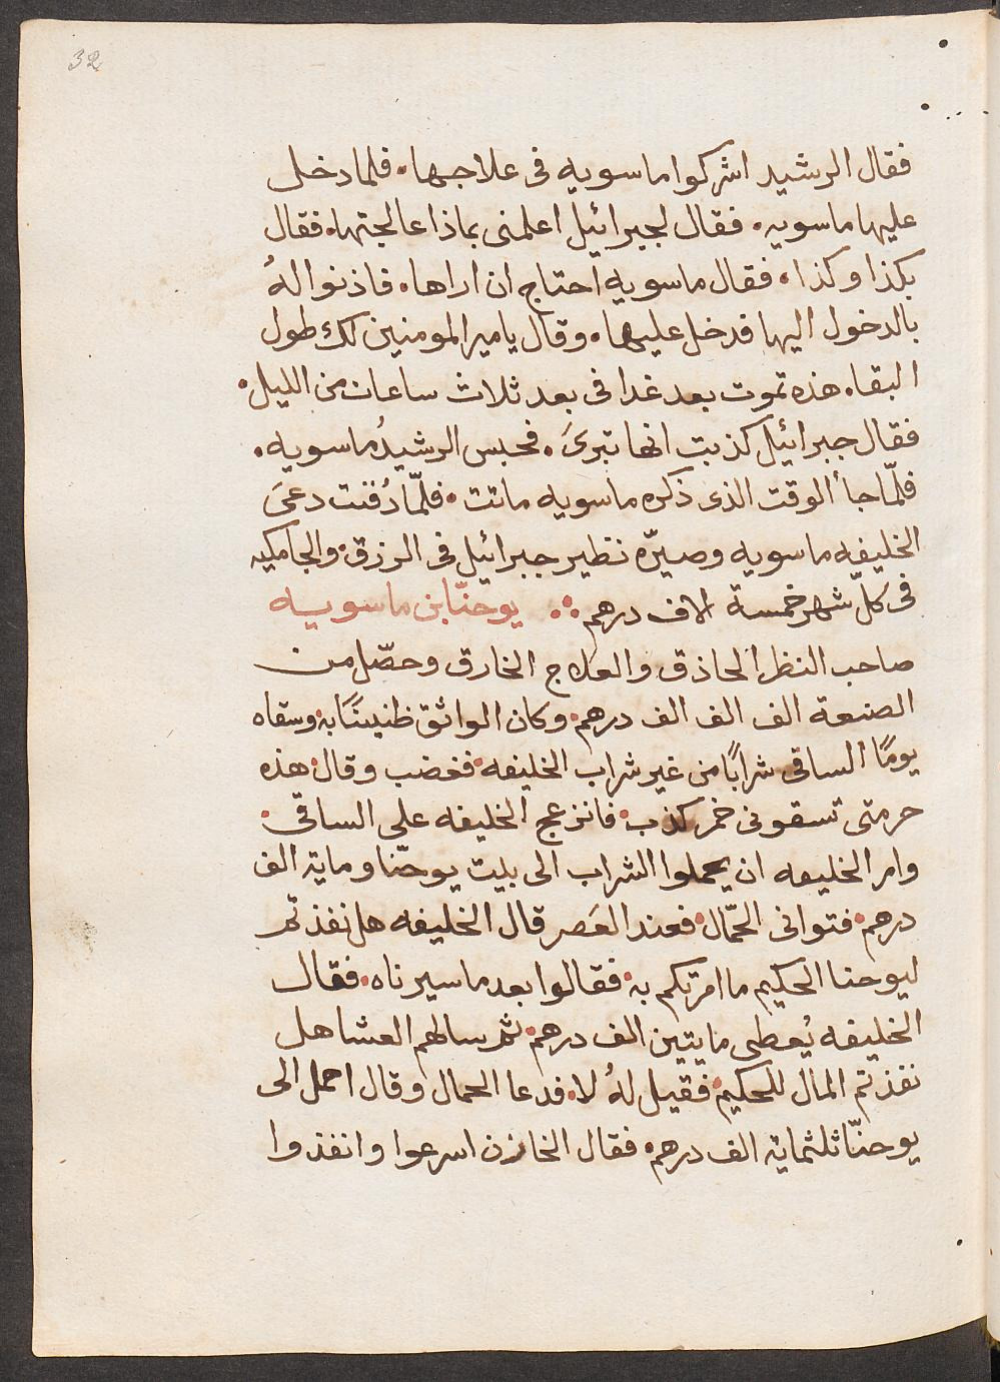 32
فقال الرشيد اشركوا ماسويه فى علاجها. فلما دخل
عليها ماسويه. فقال لجبرائيل اعلمنى بماذا عالجتها. فقال
بكذا وكذا. فقال ماسويه احتاج ان اراها. فاذنوا لهُ
بالدخول اليها فدخل عليها. وقال ياميرالمومنين لك طول
البقا. هذه تموت بعد غدا فى بعد ثلاث ساعات من الليل.
فقال جبرائيل كذبت انها تبرئَ. فحبس الرشيدُ ماسويه.
فلمّا جأ الوقت الذى ذكره ماسويه ماتت. فلمّا دُفنت دعىَ
الخليفه ماسويه وصيرّه نظير جبرائيل فى الرزق. والجامكيه
فى كلّ شهر خمسة الاف درهم ∴ يوحنّا بن ماسويه
صاحب النظر الحاذق والعلاج الخارق وحصّل من
الصنعة الف الف الف درهم. وكان الواثق ظنينًا به. وسقاه
يومًا الساقى شرابًا من غير شراب الخليفه. فغضب وقال. هذه
حرمتى تسقونى خمر كذب. فانزعج الخليفه على الساقى.
وامر الخليفه ان يحملوا الشراب الى بليت يوحنّا وماية الف
درهم. فتوانى الحمّال. فعند العَصر قال الخليفه هل نفذتم
ليوحنا الحكيم ما امرتكم به. فقالوا بعد ما سيرناه. فقال
الخليفه يُعطى مايتين الف درهم. ثم سالهم العشا هل
نفذتم المال للحكيم. فقيل لهُ لا. فدعا الحمال وقال احمل الى
يوحنّا ثلثماية الف درهم. فقال الخازن اسرعوا وانفذوا